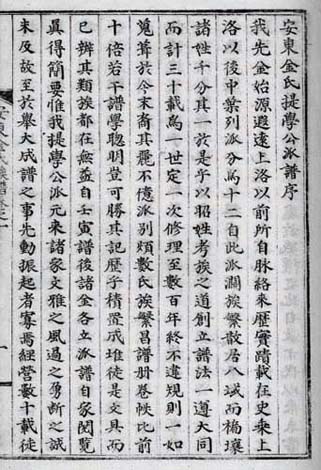 安東金氏提學公派譜序
我先金始源遐遠上洛以前所自脉絡來歷實蹟載在史乘上
洛以後中葉列派分爲十二自此派濶族繁散居八域而槿壤
諸姓千分其一於是乎以昭姓考族之道創立譜法一遵大同
而計三十載爲一世定一次修理至數百年終不違規則一如
蒐葺於今末裔其麗不億派別頗數氏族繁昌譜册卷帙比前
十倍若干譜學聰明豈可勝其記歷乎積置成堆徒是文具而
已辨其類族都在無益自壬寅譜後諸金各立派譜自家閱覽
眞得簡要惟我提學公派元來諸家文雅之風過之勇斷之誠
未及故至於擧大成譜之事先動振起者寡焉經營數十載徒
安東金氏族譜卷之一
一